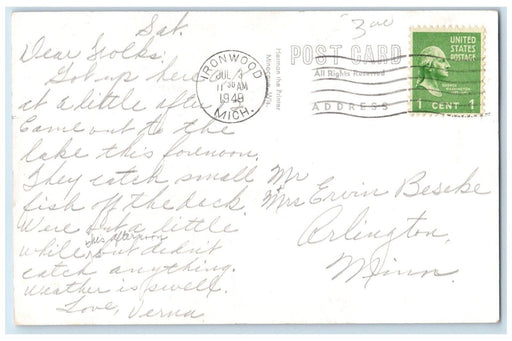 Sat.
Dear Folks:
Got up here
at a little after
Came out to the
lake this forenoon.
They catch small
fish off the dock.
Were out a little
while this afternoon but didn't
catch anything.
Weather is swell.
Love, Verna
Mr
Mrs Ervin Beseke
Arlington,
Minn.
POST CARD
All Rights Reserved
ADDRESS
IRONWOOD
JUL 3
11 30 AM
1949
MICH.
UNITED
STATES
POSTAGE
1 CENT 1